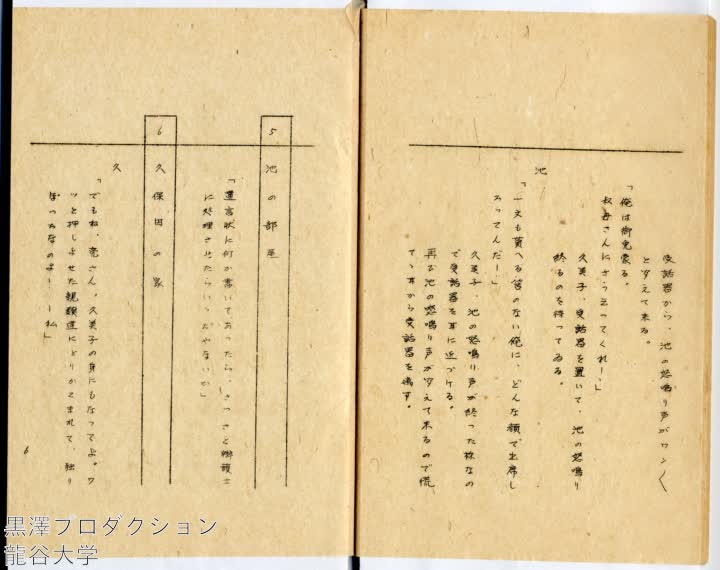 受話器から、池の怒鳴り声がワン〱
と冴えて来る。
「俺は御免蒙る。
叔母さんにさう云つてくれ！」
久美子、受話器を置いて、池の怒鳴り
終るのを待つてゐる。
池
「一文も貰へる筈のない俺に、どんな顔で出席し
ろつてんだ！」
久美子、池の怒鳴り声が終つた様なの
で受話器を耳に近づける。
再び池の怒鳴り声が冴えて来るので慌
てゝ耳から受話器を離す。
5 池の部屋
「遺言状に何か書いてあつたら、さつさと辯護士
に処理させたらいゝぢやないか」
6 久保田の家
久
「でもね、亮さん。久美子の身にもなつてよ。ワ
ッと押しよせた親類達にとりかこまれて、独り
ぽつちなのよ！ー私」
6
黒澤プロダクション
龍谷大学